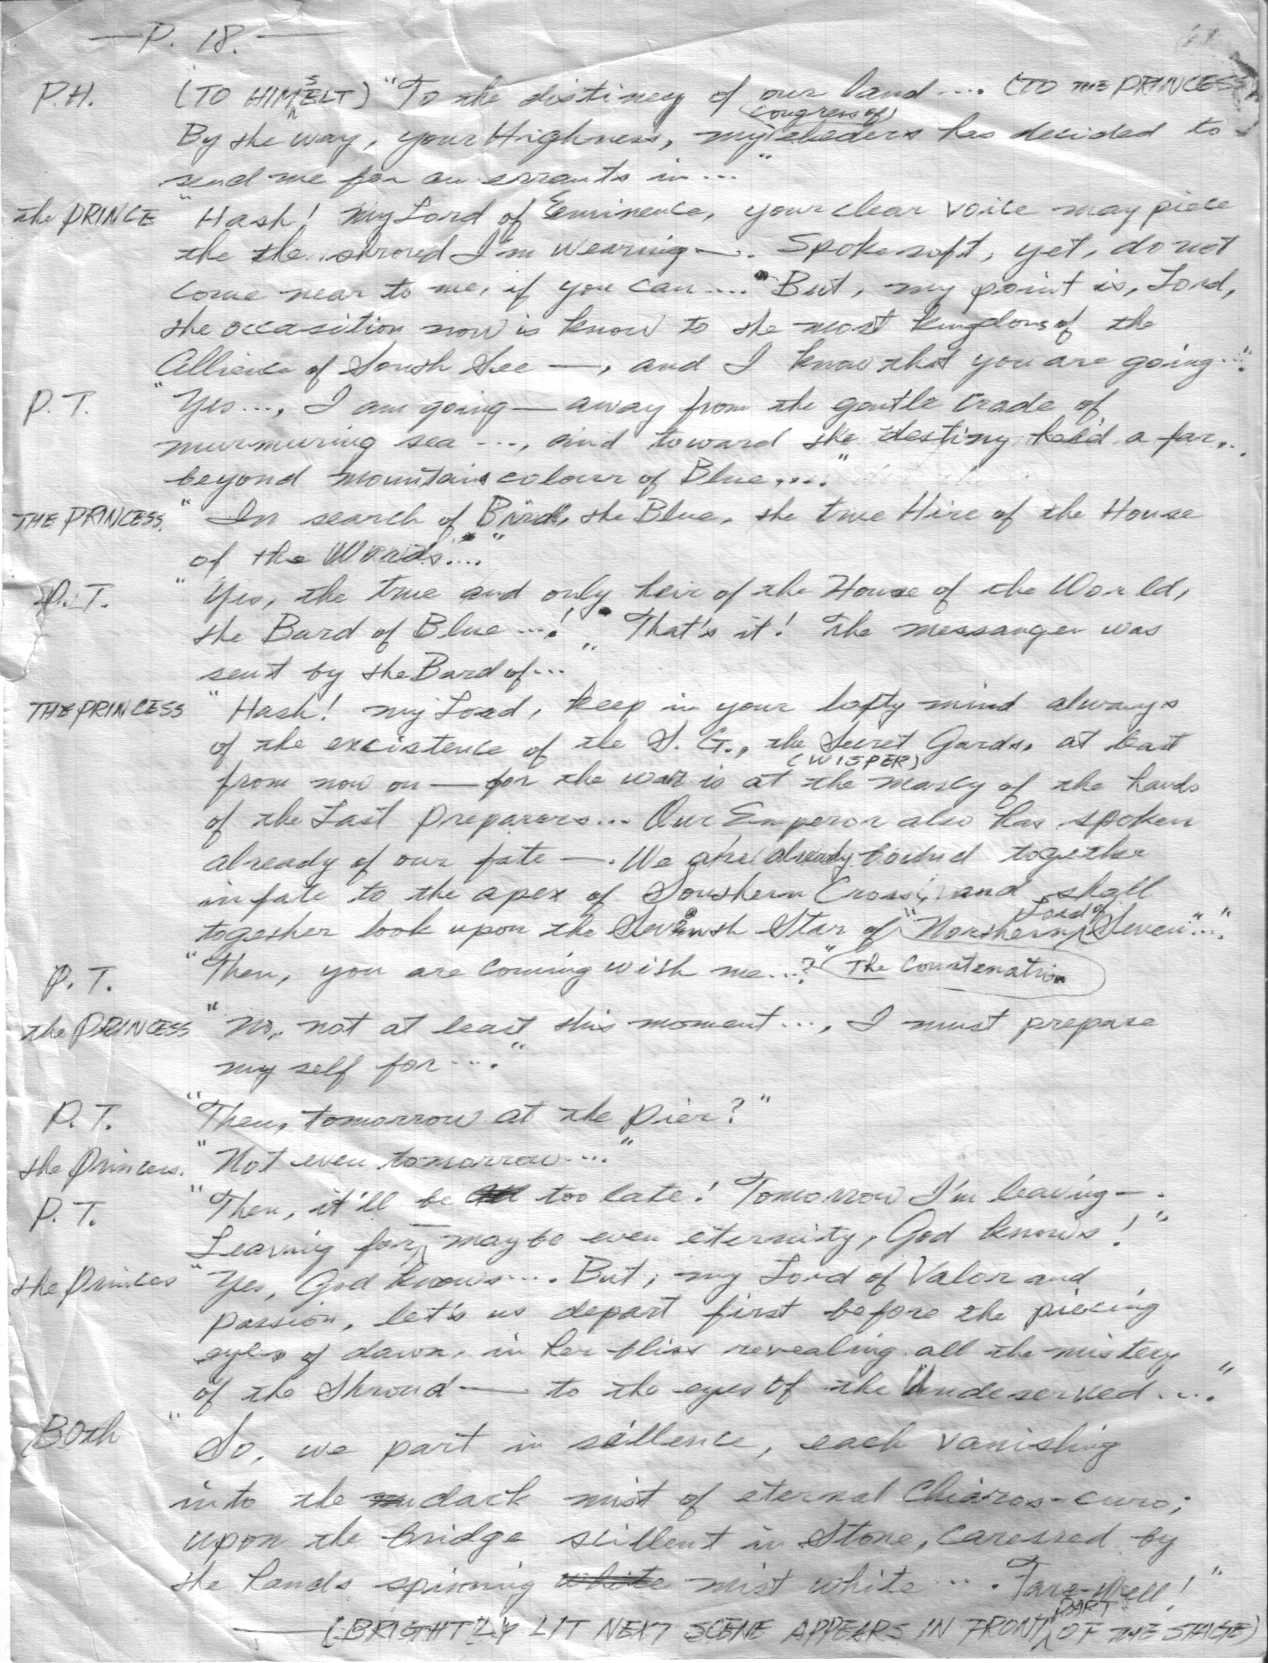 — P. 18. —
P.H. (TO HIMSELT) "To the distiney of our land.... (TO THE PRINCESS)
By the way, your Highness, my (congress of) eleders has decided to
send me for an errants in..."
the PRINCE "Hash! my Lord of Eminence, your clear voice may piece
the the shroud I'm wearing —. Spoke soft, yet, do not
come near to me, if you can.... But, my point is, Lord,
the occasition now is know to the most kingdoms of the
Allience of South See —, and I know that you are going..."
P.T. "Yes..., I am going — away from the gentle trade of
murmuring sea ..., and toward the destiny held a far...
beyond mountains colour of Blue...."
THE PRINCESS. "In search of Bard, the Blue, the true Hire of the House
of the Words...."
P.T. "Yes, the true and only heir of the House of the World,
the Bard of Blue...! That's it! The messanger was
sent by the Bard of..."
THE PRINCESS "Hash! my Lord, keep in your lofty mind always
of the excistence of the S. G., the Secret Gards, at least
from now on — for the war is at (WISPER) the mascy of the hands
of the Last Preparers... Our Emperor also has spoken
already of our fate —. We are already bound together
in fate to the apex of Southern Cross, and shall
together look upon the Seventh Star of "Northern Lord of Seven"...."
P.T. "Then, you are coming with me...?" The Constenation
the PRINCESS "No, not at least this moment..., I must prepare
my self for...."
P.T. "Then, tomorrow at the pier?"
the Princess. "Not even tomorrow...."
P.T. "Then, it'll be too late! Tomorrow I'm leaving —.
Leaving for — maybe even eternity, God knows!"
the Princes "Yes, God knows.... But, my Lord of Valor and
Passion, let's us depart first before the piecing
eyes of dawn, in her bliss revealing all the mistery
of the Shroud — to the eyes of the Undeserved...."
Both "So, we part in scillence, each vanishing
into the dark mist of eternal Chiaros-curo;
upon the bridge scillent in Stone, caressed by
the hands spinning white mist white .... Fare-Well!"
— (BRIGHTLY LIT NEXT SCENE APPEARS IN FRONT PART OF THE STAGE)